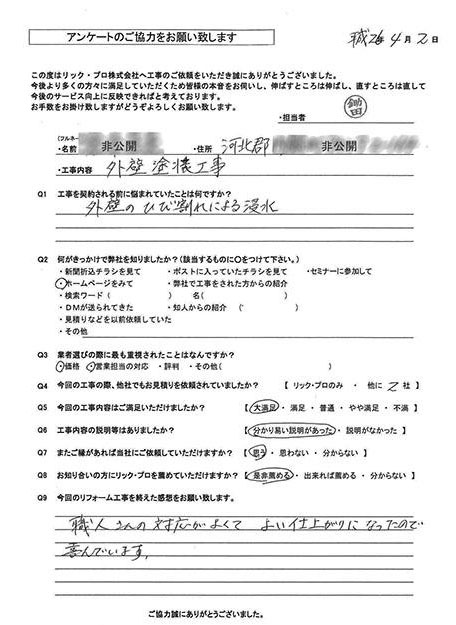 アンケートのご協力をお願い致します
平成26年4月2日
この度はリック・プロ株式会社へ工事のご依頼をいただき誠にありがとうございました。
今後より多くの方々に満足していただくため皆様の本音をお伺いし、伸ばすところは伸ばし、直すところは直して
今後のサービス向上に反映できればと考えております。
お手数をお掛け致しますがどうぞよろしくお願い致します。
・担当者 鋤田
(フルネーム)
・名前 非公開 ・住所 河北郡 非公開
・工事内容 外壁塗装工事
Q1 工事を契約される前に悩まれていたことは何ですか?
外壁のひび割れによる浸水
Q2 何がきっかけで弊社を知りましたか?(該当するものに○をつけて下さい。)
・新聞折込チラシを見て ・ポストに入っていたチラシを見て ・セミナーに参加して
・ホームページをみて ・弊社で工事をされた方からの紹介
・検索ワード( ) 名( )
・DMが送られてきた ・知人からの紹介 ( )
・見積りなどを以前依頼していた
・その他
Q3 業者選びの際に最も重視されたことはなんですか?
・価格 ・営業担当の対応 ・評判 ・その他( )
Q4 今回の工事の際、他社でもお見積りを依頼されていましたか? 【 リック・プロのみ ・ 他に 2 社 】
Q5 今回の工事内容はご満足いただけましたか? 【 大満足 ・ 満足 ・ 普通 ・ やや満足 ・ 不満 】
Q6 工事内容の説明等はありましたか? 【 分かり易い説明があった ・ 説明がなかった 】
Q7 またご縁があれば当社にご依頼していただけますか? 【 思う ・ 思わない ・ 分からない 】
Q8 お知り合いの方にリック・プロを薦めていただけますか? 【 是非薦める ・ 出来れば薦める ・ 分からない 】
Q9 今回のリフォーム工事を終えた感想をお願い致します。
職人さんの対応がよくて よい仕上がりになったので
喜んでいます。
ご協力誠にありがとうございました。